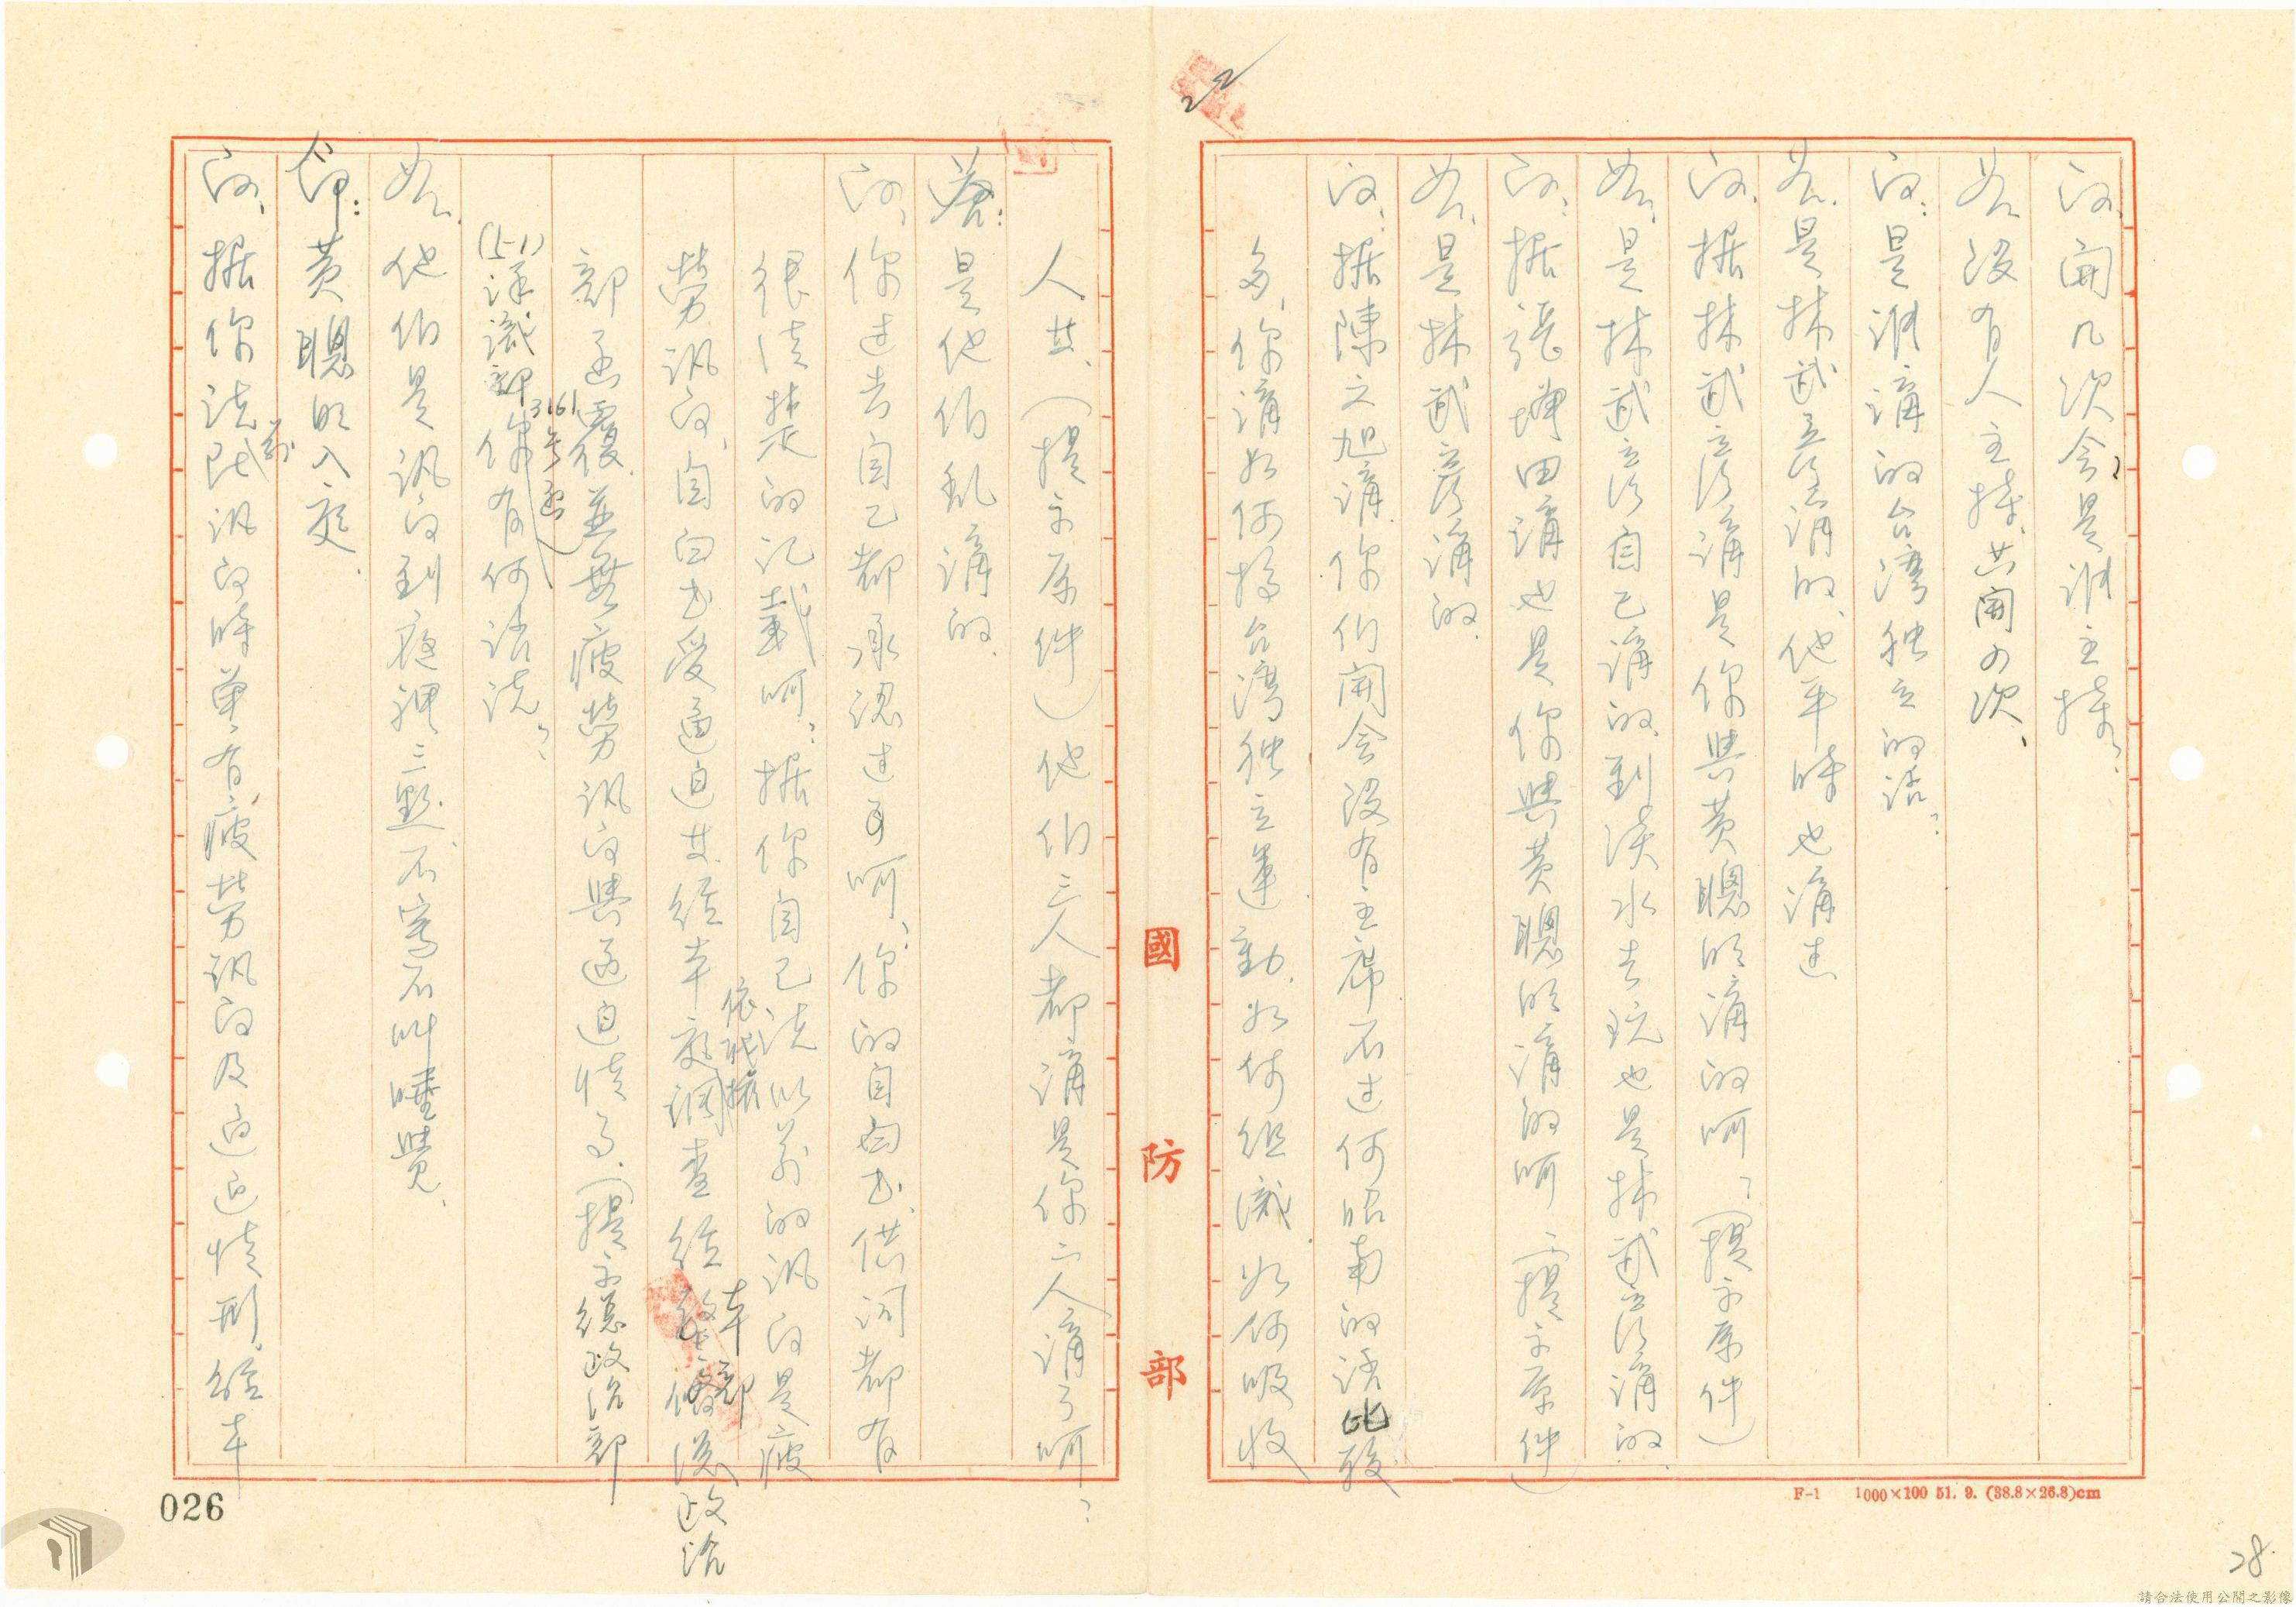 22
問、開几次会、是誰主持？
答、沒有人主持、共開四次、
問：是誰講的台湾独立的話？
答、是林武彥講的、他平時也講过
問、據林武彥講是你與黃聰明講的呵？（提示原件）
答、是林武彥自己講的、到淡水去玩也是林武彥講的、
問：據張坤田講也是你與黃聰明講的呵（提示原件）
答、是林武彥講的、
問：據陳之旭講、你们開会沒有主席、不过何昭南的話比較
多、你講如何搞台湾独立運動、如何組織、如何吸收
人共、（提示原件）他们三人都講是你二人講了呵？
答：是他们乱講的、
問、你过去自己都承認过了呵、你的自白书、供词都有
很清楚的记載呵？據你自己说以前的訊问是疲
勞訊问、自白书受逼迫共、經本庭依职權調查經本部總政治
部函覆、並無疲勞訊问與逼迫情事、（提示總政治部
(51)詳識字3161号函）你有何話说？
答、他们是訊问到夜裡三點、不寫不叫睡覺、
命：黃聰明入庭、
問、據你说以前訊问時常有疲勞訊问及逼迫情形、經本
國防部
F-1 1000×100 51. 9. (38.8×26.8)cm
026
28
請合法使用公開之影像